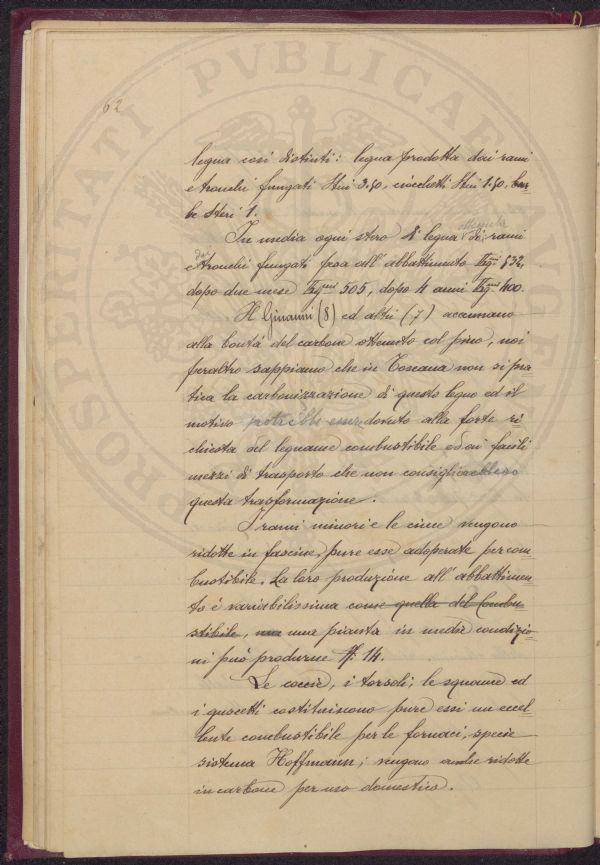 62
legna così distinti: legna prodotta dai rami
e tronchi fungati Steri 3.50, ciocchetti Steri 1.50, bar-
be Steri 1.
In media ogni stero di legna ottenuta di rami
e dai tronchi fungati pesa all'abbattimento Kgmi 832,
dopo due mesi Kgmi 505, dopo 4 anni Kgmi 400.
Il Ginanni (8) ed altri (7) accennano
alla bontà del carbone ottenuto col pino, noi
peraltro sappiamo che in Toscana non si pra
tica la carbonizzazione di questo legno ed il
motivo potrebbe esser dovuto alla forte ri-
chiesta del legname combustibile ed ai facili
mezzi di trasporto che non consiglierebbero
questa trasformazione.
I rami minori e le cime vengono
ridotte in fascine, pure esse adoperate per com
bustibile. La loro produzione all'abbattimen-
to è variabilissima come quella del Combu-
stibile, una pianta in medie condizio-
ni può produrne N. 14.
Le coccie, i torsoli, le squame ed
i guscetti costituiscono pure essi un eccel
lente combustibile per le fornaci, specie
sistema Hoffmann; vengono anche ridotte
in carbone per uso domestico.
PROSPERITATI PVBLICAE AVGENDAE